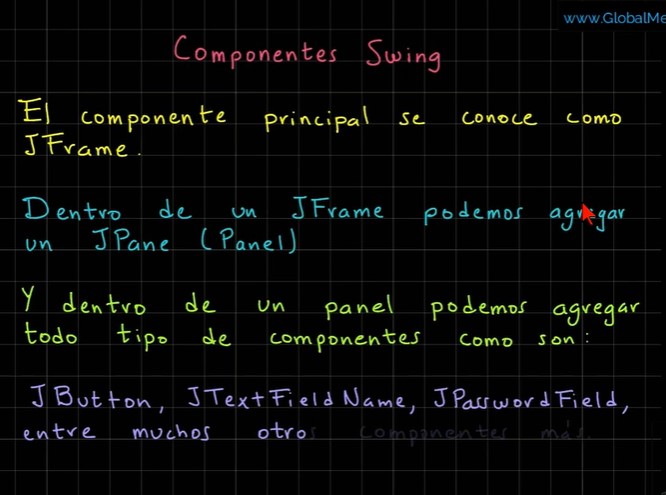 www.GlobalMe
Componentes Swing
El componente principal se conoce como
JFrame.
Dentro de un JFrame podemos agregar
un JPane (Panel)
Y dentro de un panel podemos agregar
todo tipo de componentes como son:
JButton, JTextFieldName, JPasswordField,
entre muchos otros componentes más